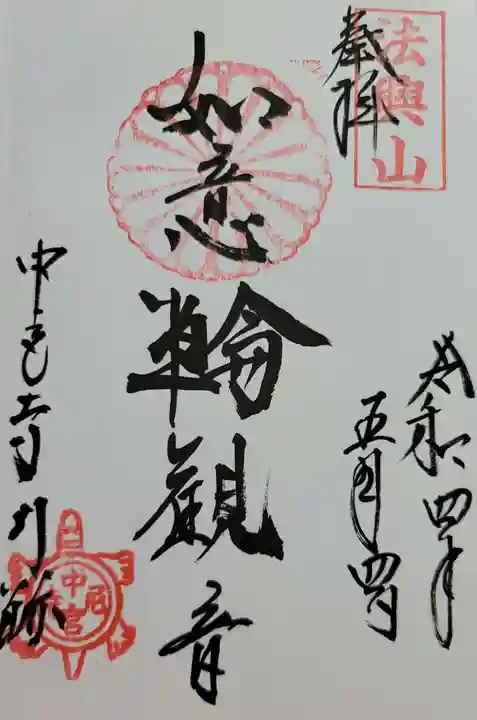 法興山
奉拝
令和四年
五月四日
如意輪觀音
中宮寺門跡
中宮